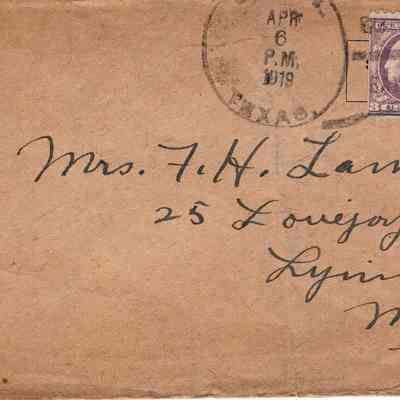 APR
6
P.M.
1919
TEXAS.
Mrs. F. H. Lam
25 Lovejoy
Lynn
M